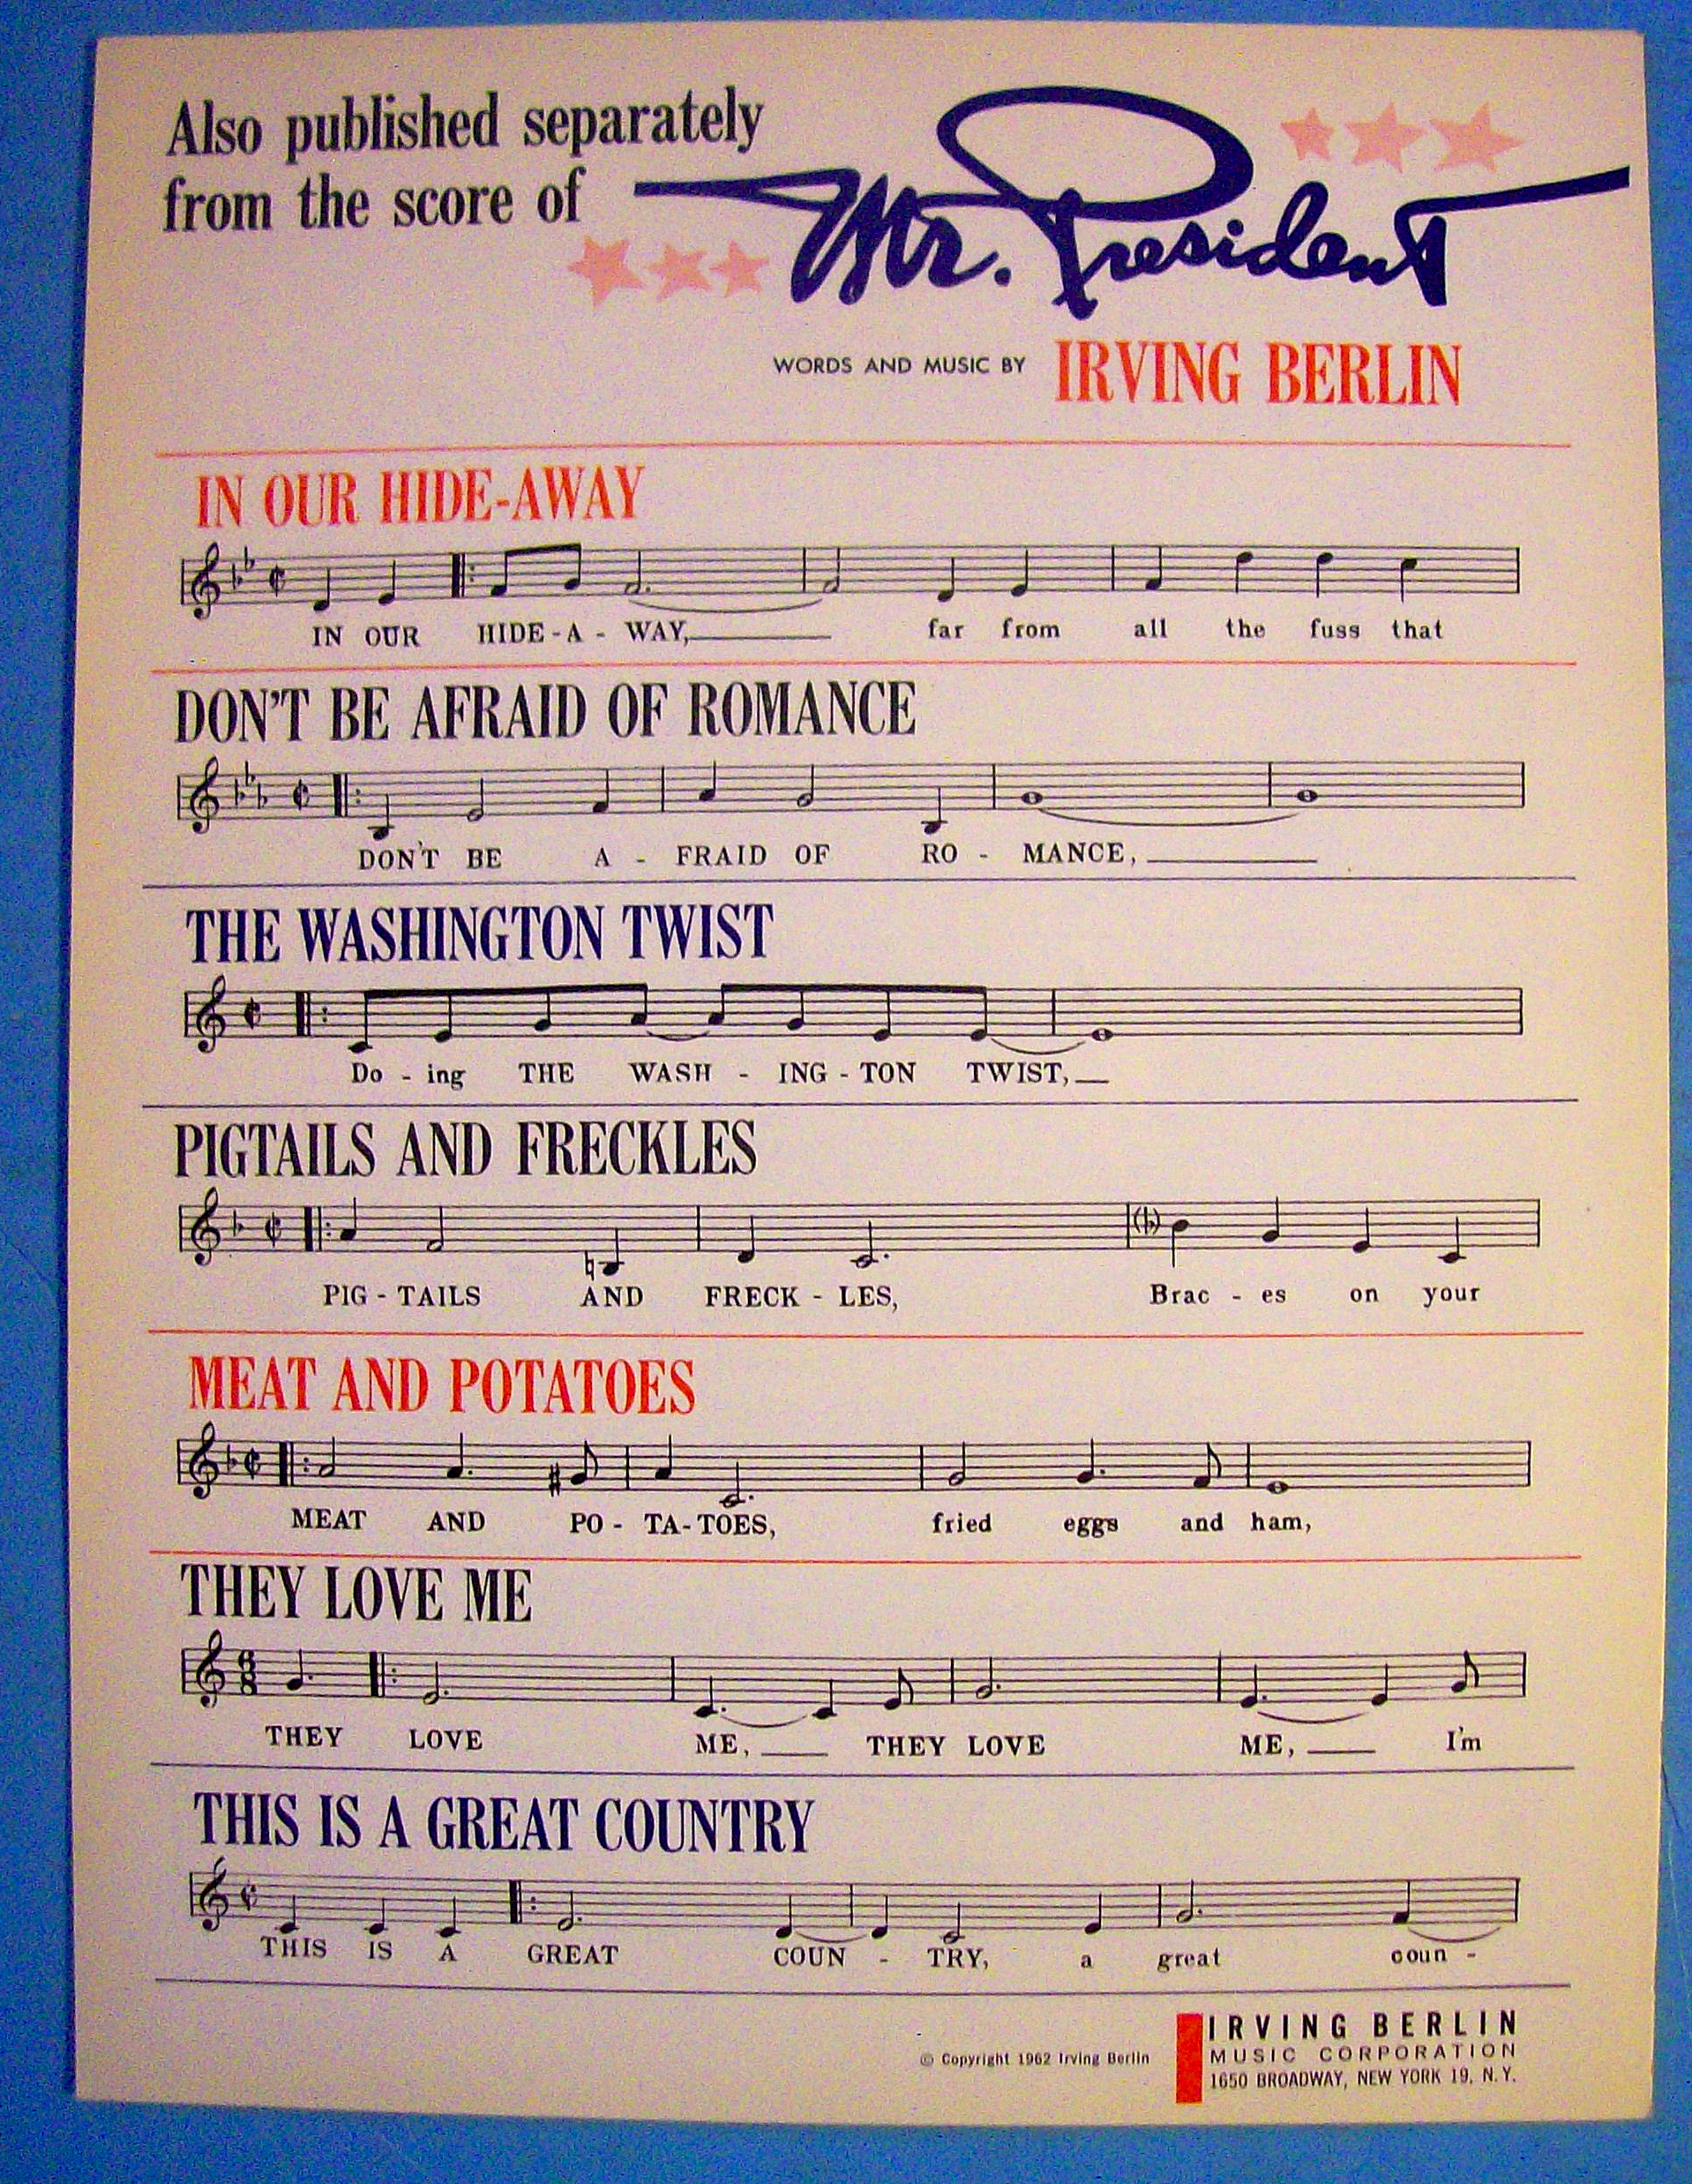 Also published separately
from the score of
Mr. President
WORDS AND MUSIC BY IRVING BERLIN
IN OUR HIDE-AWAY
IN OUR HIDE - A - WAY, far from all the fuss that
DON'T BE AFRAID OF ROMANCE
DON'T BE A - FRAID OF RO - MANCE,
THE WASHINGTON TWIST
Do - ing THE WASH - ING - TON TWIST,
PIGTAILS AND FRECKLES
PIG - TAILS AND FRECK - LES, Brac - es on your
MEAT AND POTATOES
MEAT AND PO - TA - TOES, fried eggs and ham,
THEY LOVE ME
6
8
THEY LOVE ME, THEY LOVE ME, I'm
THIS IS A GREAT COUNTRY
THIS IS A GREAT COUN - TRY, a great coun -
© Copyright 1962 Irving Berlin
IRVING BERLIN
MUSIC CORPORATION
1650 BROADWAY, NEW YORK 19, N.Y.